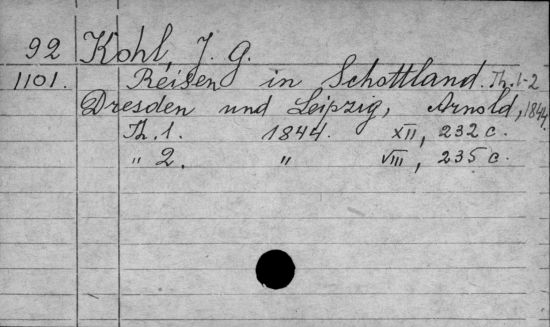 92 Kohl, J. G.
1101. Reisen in Schottland. Th. 1-2
Dresden und Leipzig, Arnold, 1844.
Th. 1. 1844. XII, 232 c.
" 2. " VIII, 235 c.